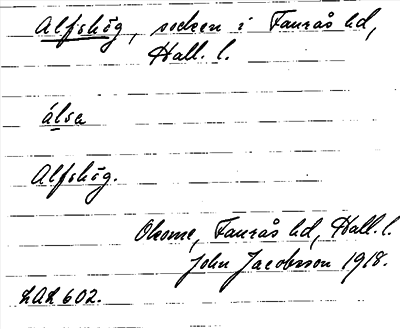 Alfshög, socken i Faurås hd,
Hall. l.
álsa
Alfshög.
Okome, Faurås hd, Hall. l.
John Jacobsson 1918.
LAL 602.